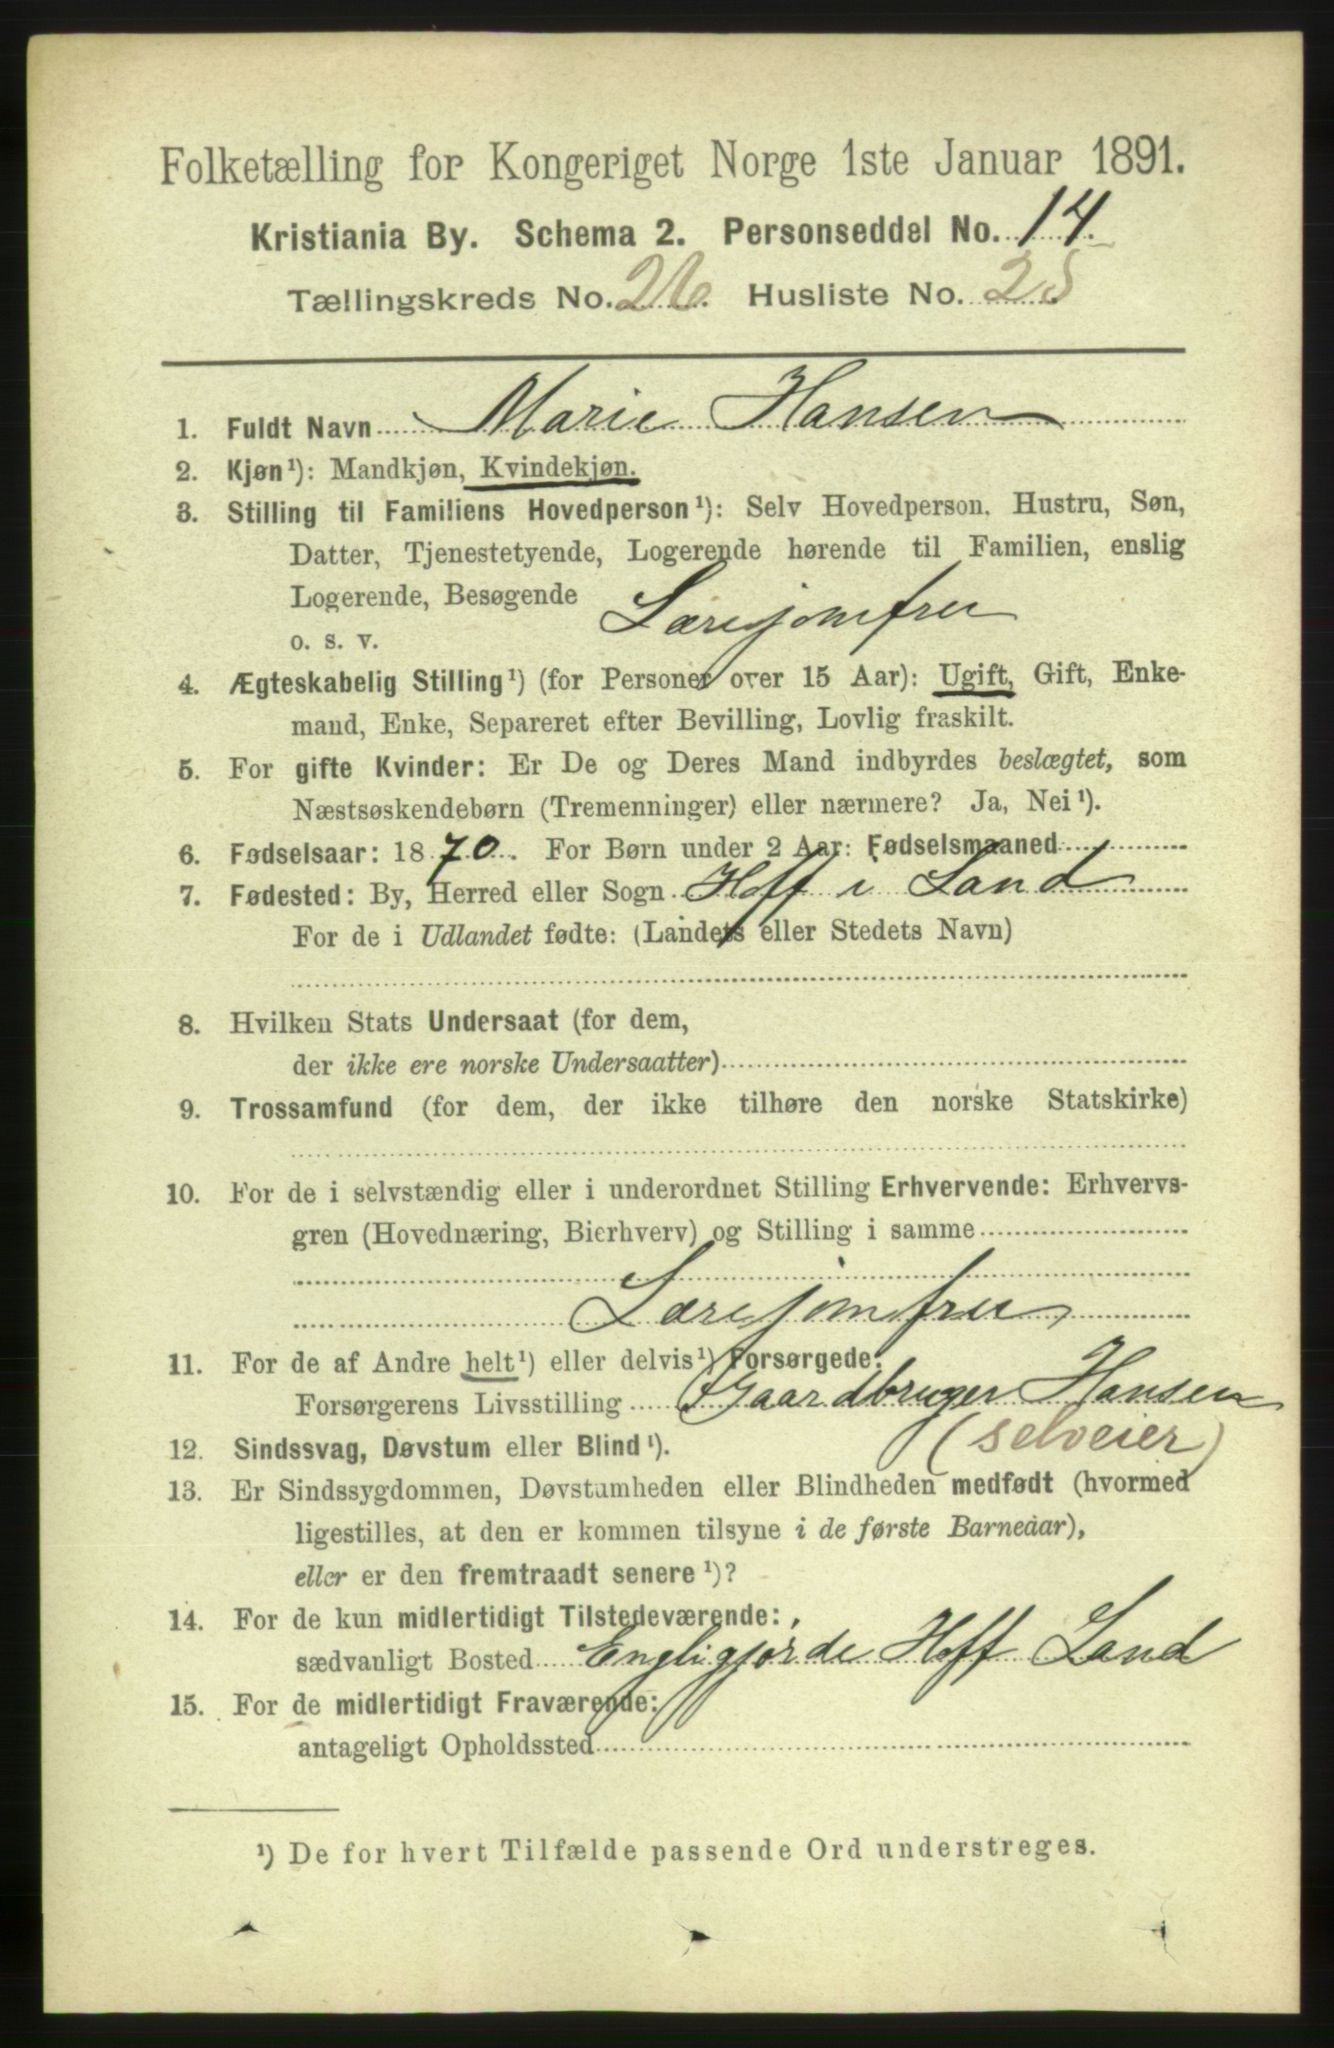 Folketælling for Kongeriget Norge 1ste Januar 1891.
Kristiania By. Schema 2. Personseddel No. 14.
Tællingskreds No. 26. Husliste No. 25
1. Fuldt Navn Marie Hansen
2. Kjøn¹): Mandkjøn, Kvindekjøn.
3. Stilling til Familiens Hovedperson¹): Selv Hovedperson. Hustru, Søn,
Datter, Tjenestetyende, Logerende hørende til Familien, enslig
Logerende, Besøgende
o. s. v. Lærejomfru
4. Ægteskabelig Stilling¹) (for Personer over 15 Aar): Ugift, Gift, Enke-
mand, Enke, Separeret efter Bevilling, Lovlig fraskilt.
5. For gifte Kvinder: Er De og Deres Mand indbyrdes beslægtet, som
Næstsøskendebørn (Tremenninger) eller nærmere? Ja, Nei¹).
6. Fødselsaar: 1870. For Børn under 2 Aar: Fødselsmaaned
7. Fødested: By, Herred eller Sogn Hoff i Land
For de i Udlandet fødte: (Landets eller Stedets Navn)
8. Hvilken Stats Undersaat (for dem,
der ikke ere norske Undersaatter)
9. Trossamfund (for dem, der ikke tilhøre den norske Statskirke)
10. For de i selvstændig eller i underordnet Stilling Erhvervende: Erhvervs-
gren (Hovednæring, Bierhverv) og Stilling i samme
Lærejomfru
11. For de af Andre helt¹) eller delvis¹) Forsørgede:
Forsørgerens Livsstilling Gaardbruger Hansen
(selveier)
12. Sindssvag, Døvstum eller Blind¹).
13. Er Sindssygdommen, Døvstumheden eller Blindheden medfødt (hvormed
ligestilles, at den er kommen tilsyne i de første Barneaar),
eller er den fremtraadt senere¹)?
14. For de kun midlertidigt Tilstedeværende:
sædvanligt Bosted Hoff Land
15. For de midlertidigt Fraværende:
antageligt Opholdssted
¹) De for hvert Tilfælde passende Ord understreges.